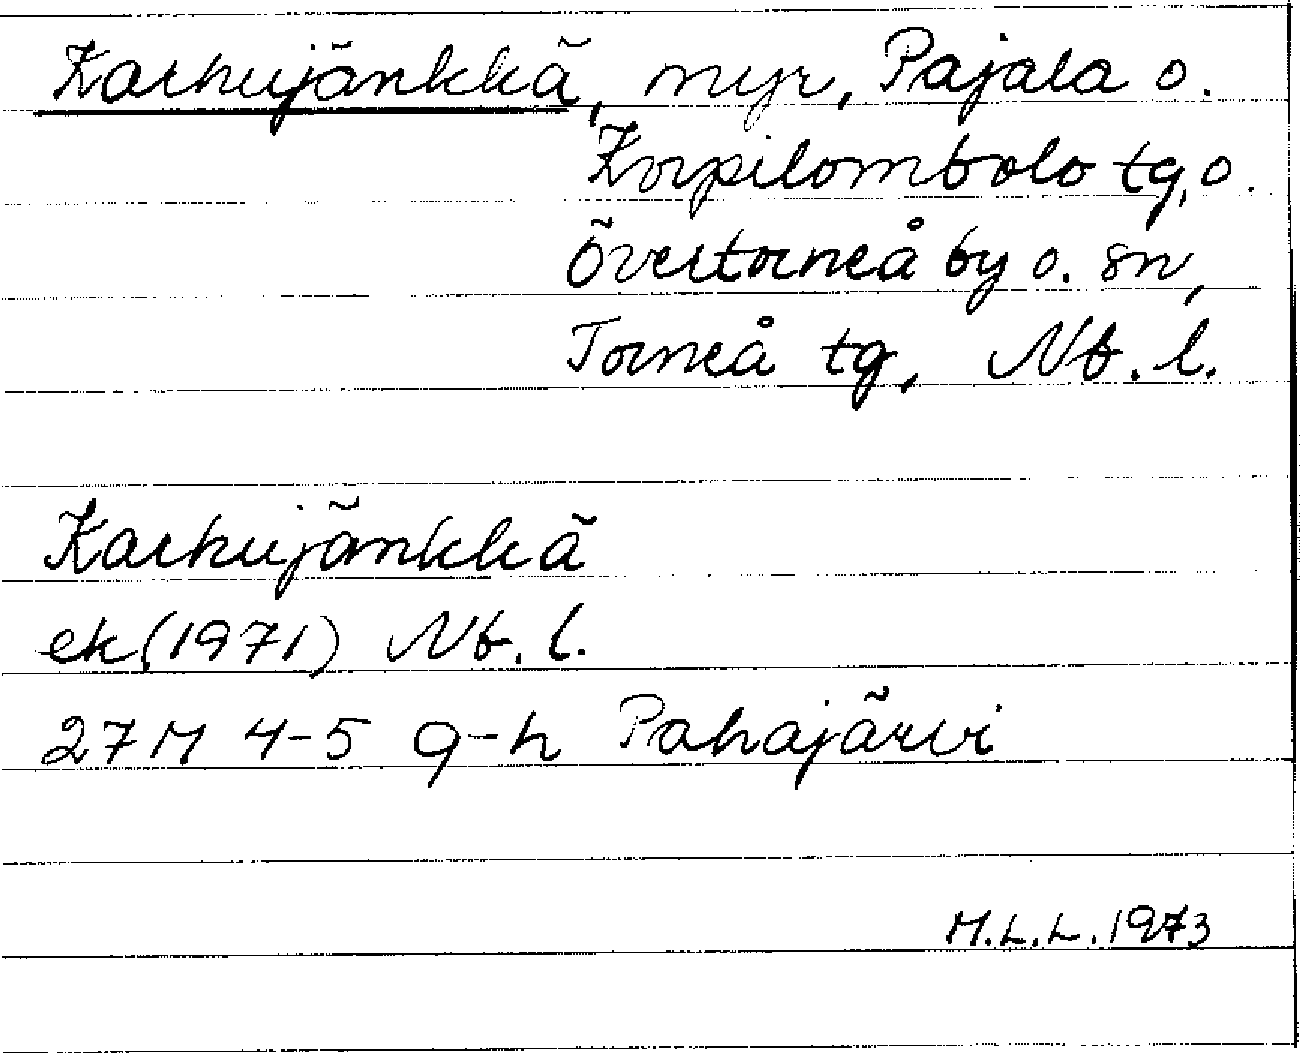 Karhujänkkä, myr, Pajala o.
Korpilombolo tg, o.
Övertorneå by o. sn,
Torneå tg, Nb. l.
Karhujänkkä
ek (1971) Nb. l.
27 M 4-5 g-h Pahajärvi
M.L.L. 1973